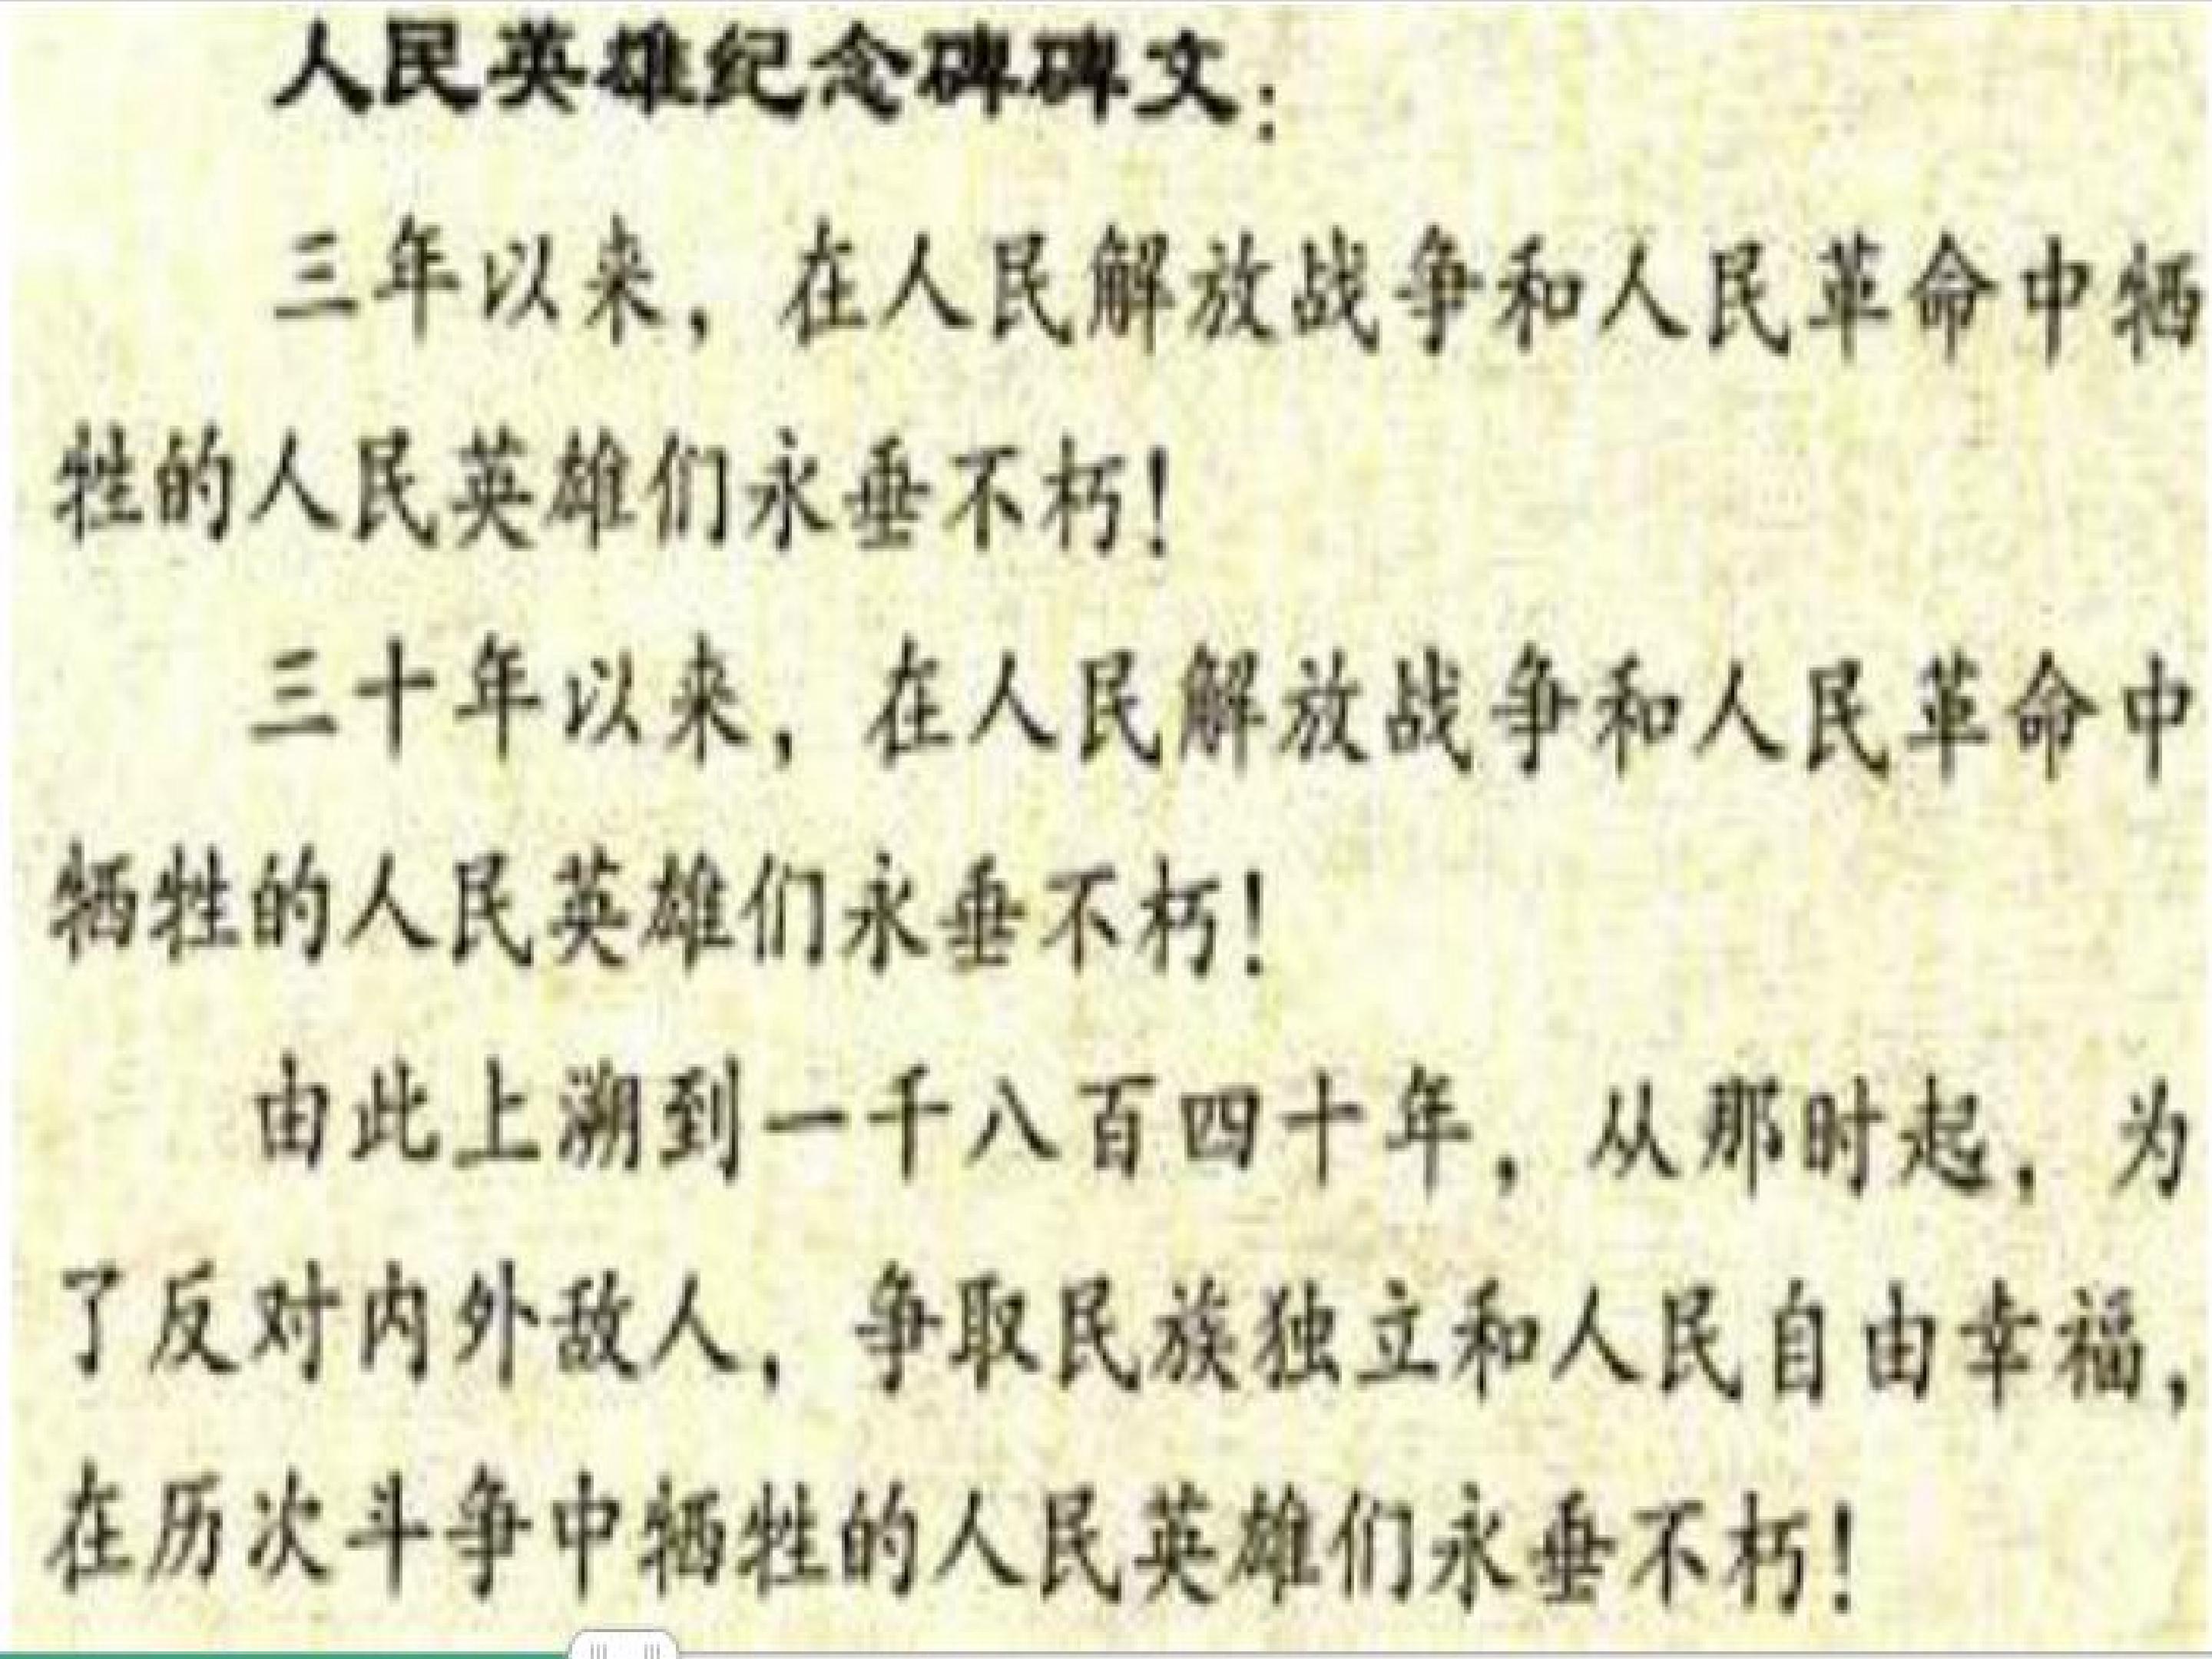 人民英雄纪念碑碑文：
三年以来，在人民解放战争和人民革命中牺
牲的人民英雄们永垂不朽！
三十年以来，在人民解放战争和人民革命中
牺牲的人民英雄们永垂不朽！
由此上溯到一千八百四十年，从那时起，为
了反对内外敌人，争取民族独立和人民自由幸福，
在历次斗争中牺牲的人民英雄们永垂不朽！